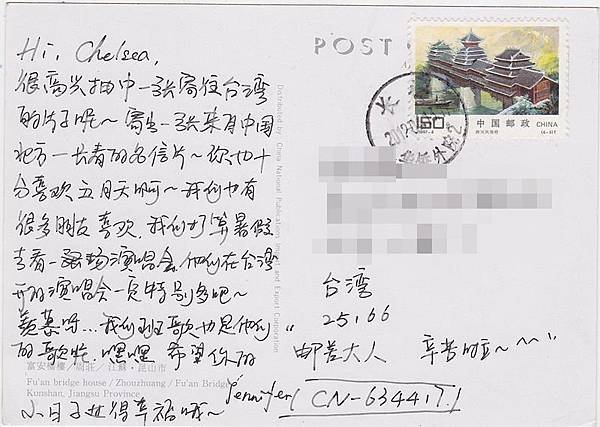 Hi, Chelsea,
很高兴抽中一张寄往台湾
的片子呢～寄出一张来自中国
北方—长春的名信片～你也十
分喜欢五月天啊～我们也有
很多朋友喜欢,我们打算暑假
去看一场演唱会,他们在台湾
开的演唱会一定特别多吧～
羡慕呀...我们班歌也是他们
的歌呢.嘿嘿 希望你的
小日子过得幸福哦～
Jennifer/ CN-634417/
POST
Distributed by China National Publications Import and Export Corporation
150
中国邮政 CHINA
长
台湾
25,66
"邮差大人 辛苦啦～^^"
富安桥楼／周莊／江蘇·昆山市
Fu'an bridge house / Zhouzhuang / Fu'an Bridge
Kunshan, Jiangsu Province